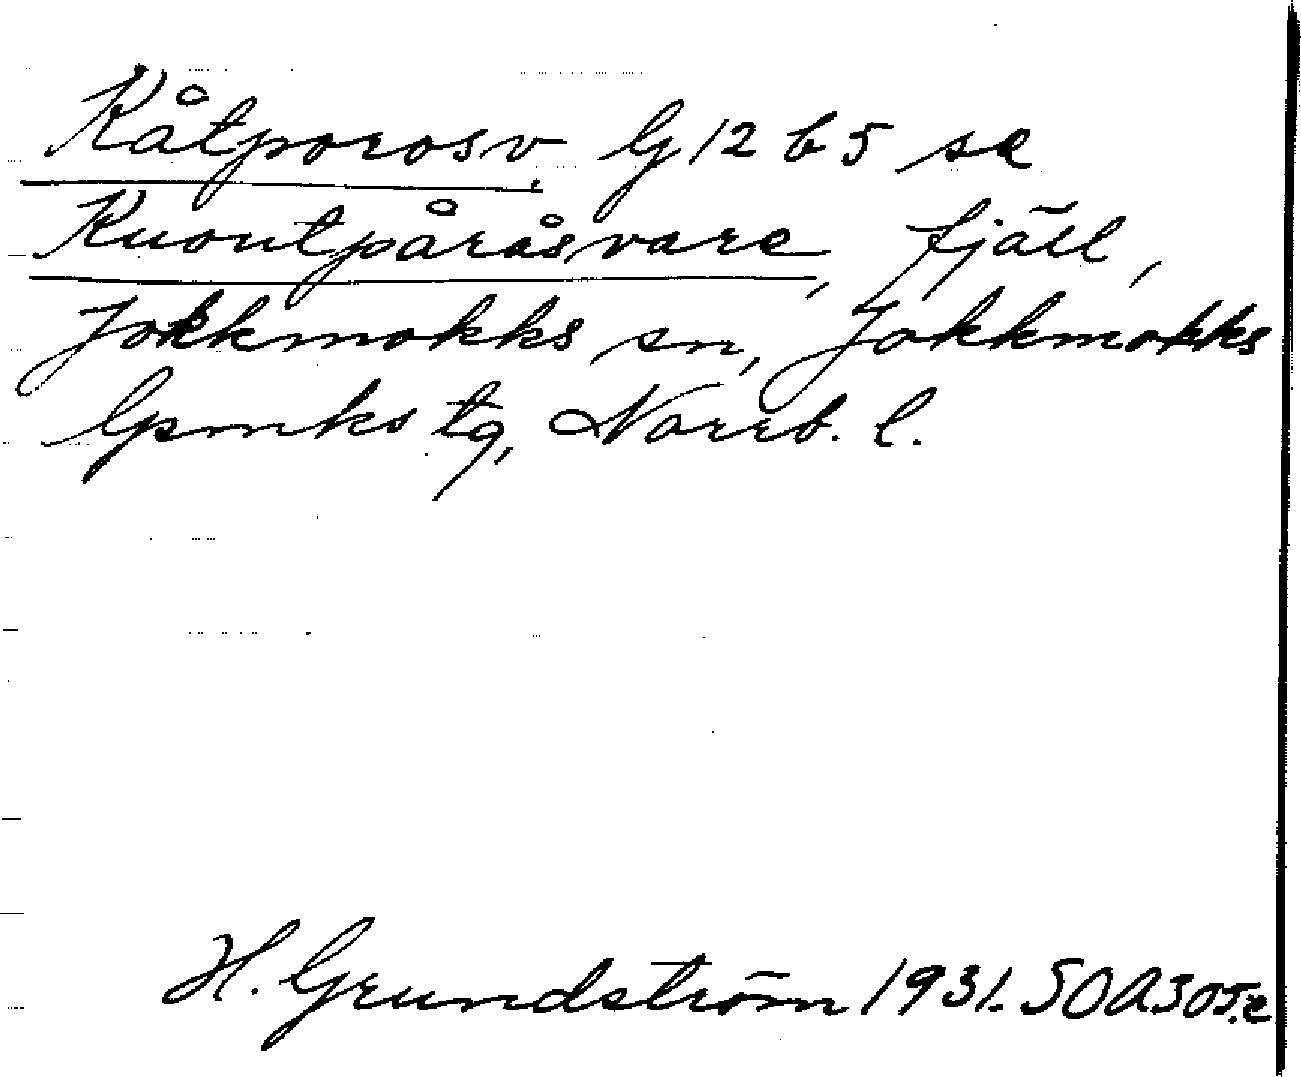 Kåtporosv. G 12 b 5 se
Kuoutpåråsvare, fjäll,
Jokkmokks sn, Jokkmokks
lpmks tg, Norrb. l.
H. Grundström 1931. SOA 305.e